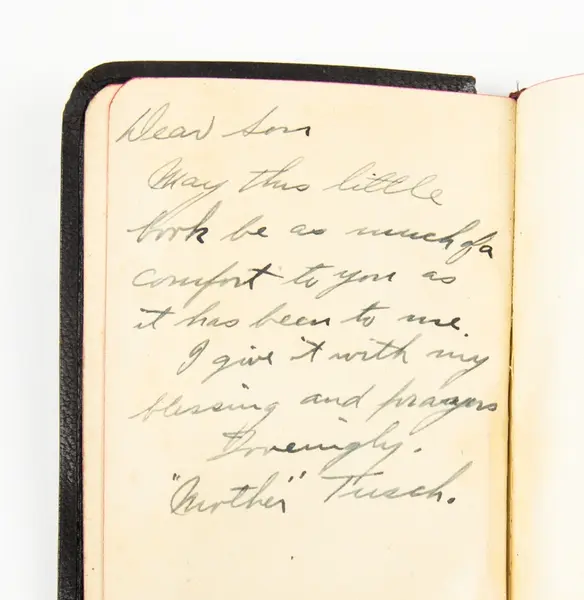 Dear Son
May this little
book be as much of a
comfort to you as
it has been to me.
I give it with my
blessing and prayers
Lovingly.
"Mother" Tusch.